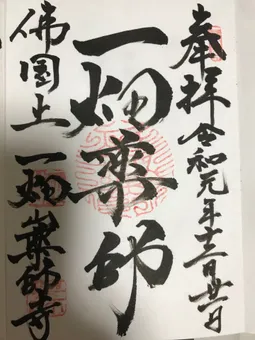 奉拝 令和元年十二月廿一日
一畑薬師
佛國土 一畑山薬師寺